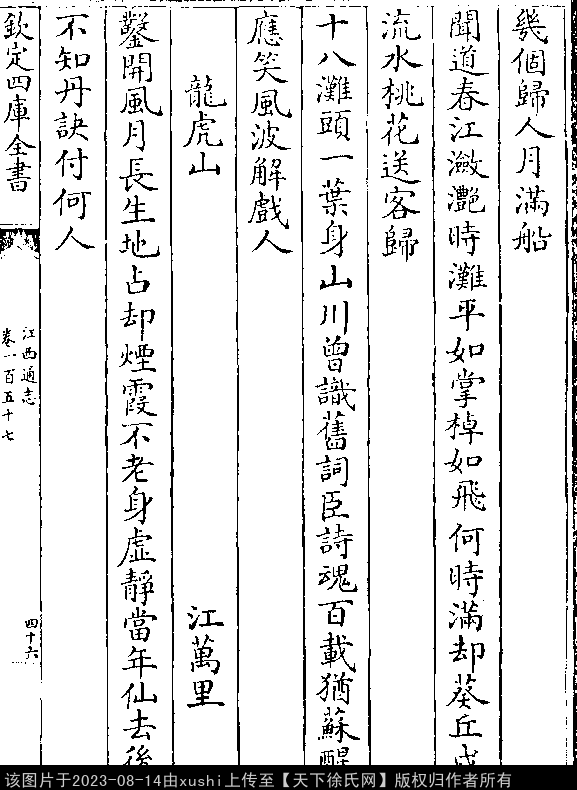 幾個歸人月滿船
聞道春江瀲灧時灘平如掌棹如飛何時滿却葵丘戍
流水桃花送客歸
十八灘頭一葉身山川曾識舊詞臣詩魂百載猶蘇醒
應笑風波解戲人
龍虎山　江萬里
鑿開風月長生地占却煙霞不老身虛靜當年仙去後
不知丹訣付何人
欽定四庫全書
江西通志
卷一百五十七
四十六
该图片于2023-08-14由xushi上传至【天下徐氏网】版权归作者所有